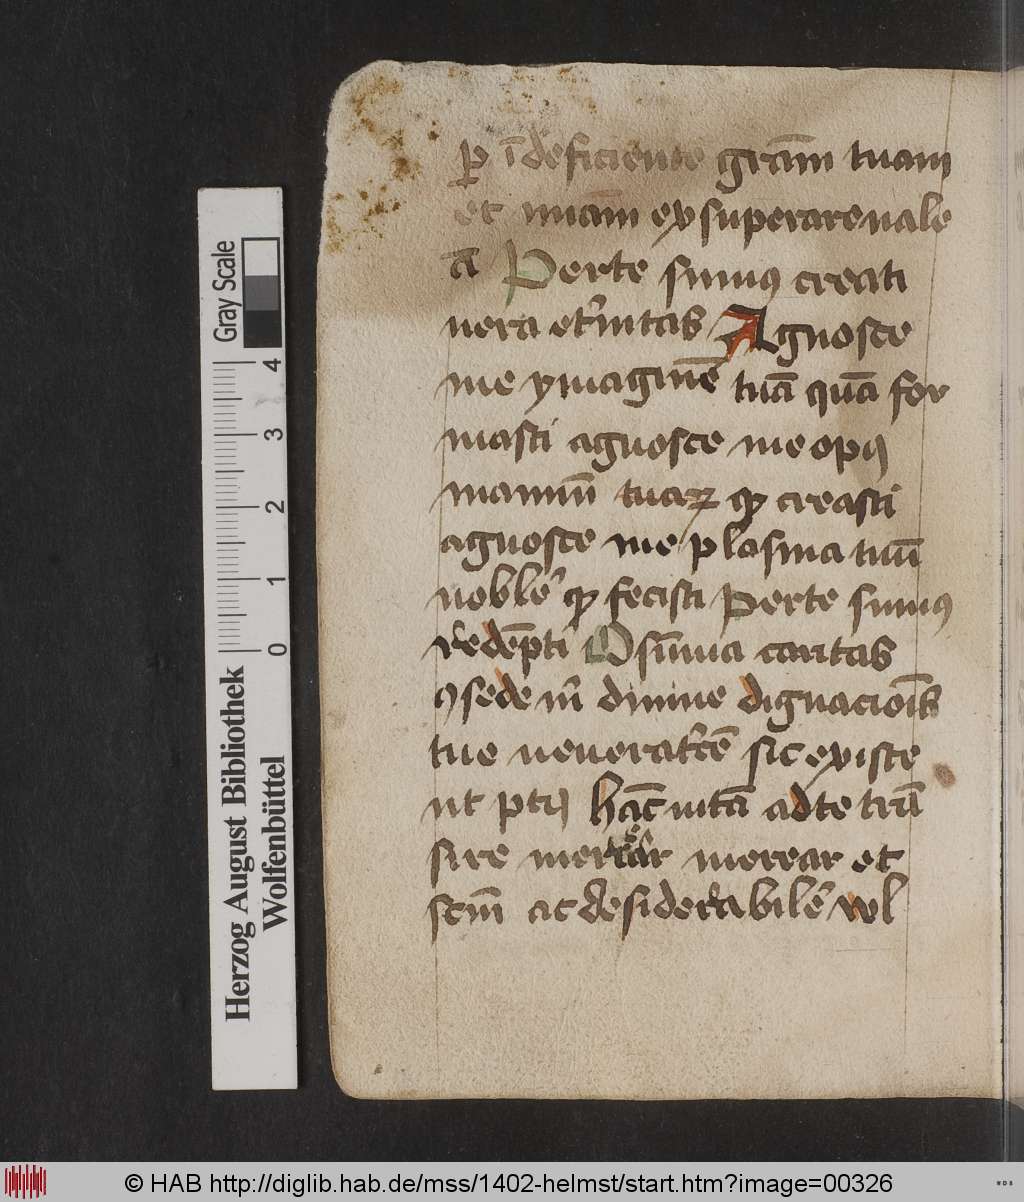 ꝑ ī deficiente grām tuam
et miām exsuperare uale
ā Per te sumꝰ creati
uera etͥnitas Agnosce
me ymaginē tuā quā for
masti agnosce me opꝰ
manuū tuaꝝ creasti
agnosce me plasma tuū
noblē fecisti Per te sumꝰ
redēpti O sūma caritas
ꝯsede m̄ diuine dignacionis
tue sic existe
ut ptꝰ hāc uitā ad te trā
sire merear et
scm̄ ac desiderabilē wl
Gray Scale
0 1 2 3 4
Herzog August Bibliothek
Wolfenbüttel
© HAB http://diglib.hab.de/mss/1402-helmst/start.htm?image=00326